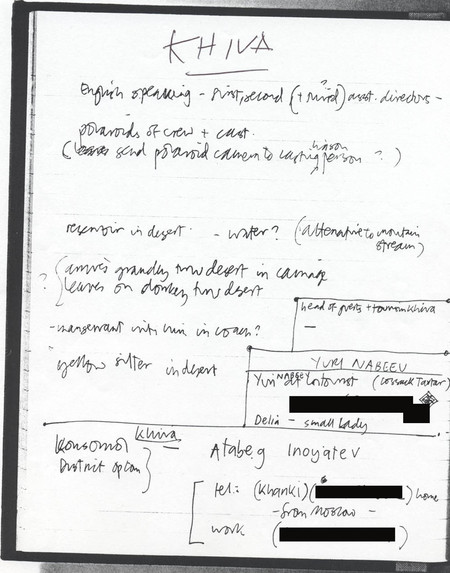 KHIVA
English speaking - first, second (+ third?) asst. directors -
polaroids of crew + cast.
(send polaroid camera to casting liaison person ?)
reservoir in desert. - water? (alternative to mountain
stream)
? { arrives grandly thru desert in carriage
leaves on donkey thru desert
head of guests + tourism Khiva
—
- manservant with him in coach?
YURI NABEEV
yellow filter in desert
Yuri NABEEV Intourist (cossack Tartar)
Delia - small lady
Komsomol Khiva
District
Atabeg Inoyatev
tel: (Khanki) ( ) home
- from Moscow -
work ( )